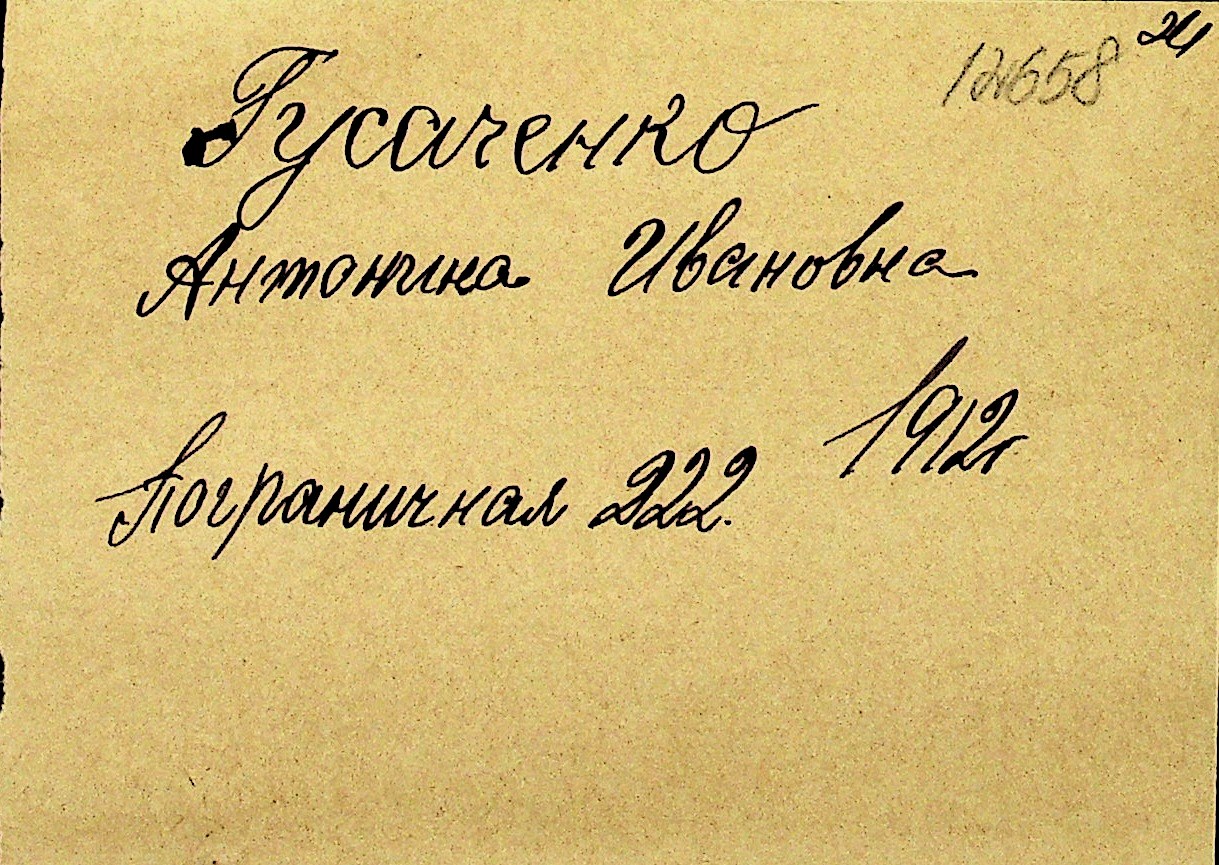 12658
Гусаченко
Антонина Ивановна
1912г
Пограничная 222.